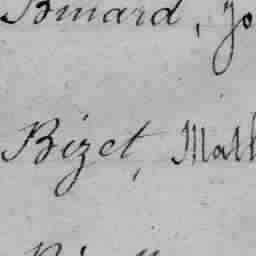 Binard, Jo
Bizet, Math